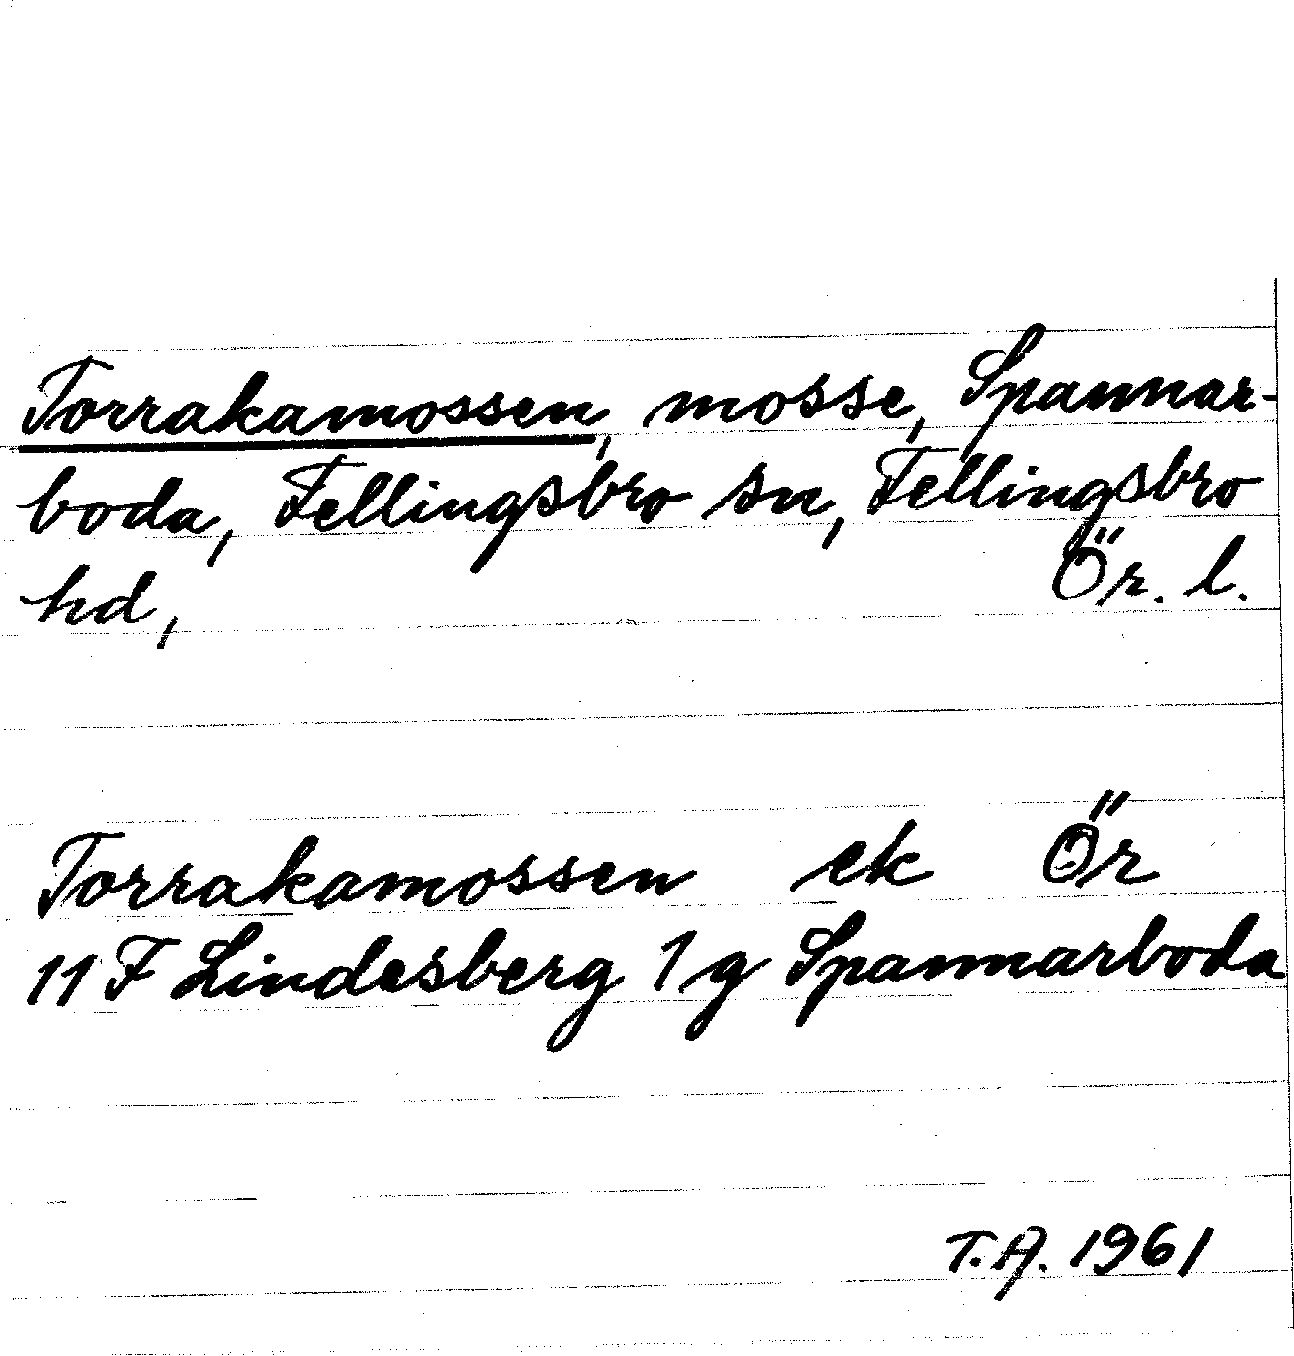 Torrakamossen, mosse, Spannar-
boda, Fellingsbro sn, Fellingsbro
hd, Ör. l.
Torrakamossen ek Ör
11 F Lindesberg 1 g Spannarboda
T.A. 1961